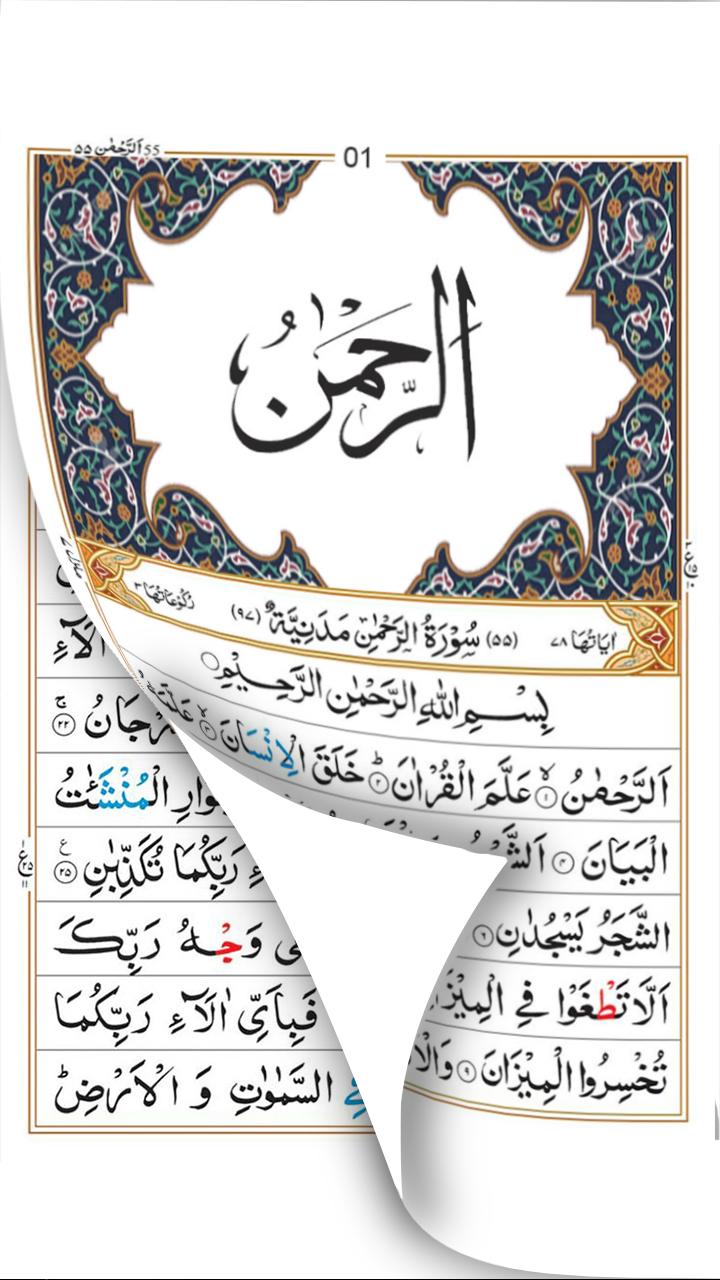 55 اَلرَّحْمٰن ۵۵
01
اَلرَّحْمٰنُ
اٰيَاتُهَا ٧٨ (۵۵) سُوْرَةُ الرَّحْمٰنِ مَدَنِيَّةٌ (٩٧) رُكُوْعَاتُهَا ٣
بِسْمِ اللّٰهِ الرَّحْمٰنِ الرَّحِيْمِ
اَلرَّحْمٰنُ ١ عَلَّمَ الْقُرْاٰنَ ٢ خَلَقَ الْاِنْسَانَ ٣
الْبَيَانَ ٤
الشَّجَرُ يَسْجُدٰنِ ٦
اَلَّا تَطْغَوْا فِي
تُخْسِرُوا الْمِيْزَانَ ٩
اٰلَآءِ
٢٢
الْمُنْشَـٰٔتُ
رَبِّكُمَا تُكَذِّبٰنِ ٢٥
وَجْهُ رَبِّكَ
فَبِاَيِّ اٰلَآءِ رَبِّكُمَا
السَّمٰوٰتِ وَ الْاَرْضِ